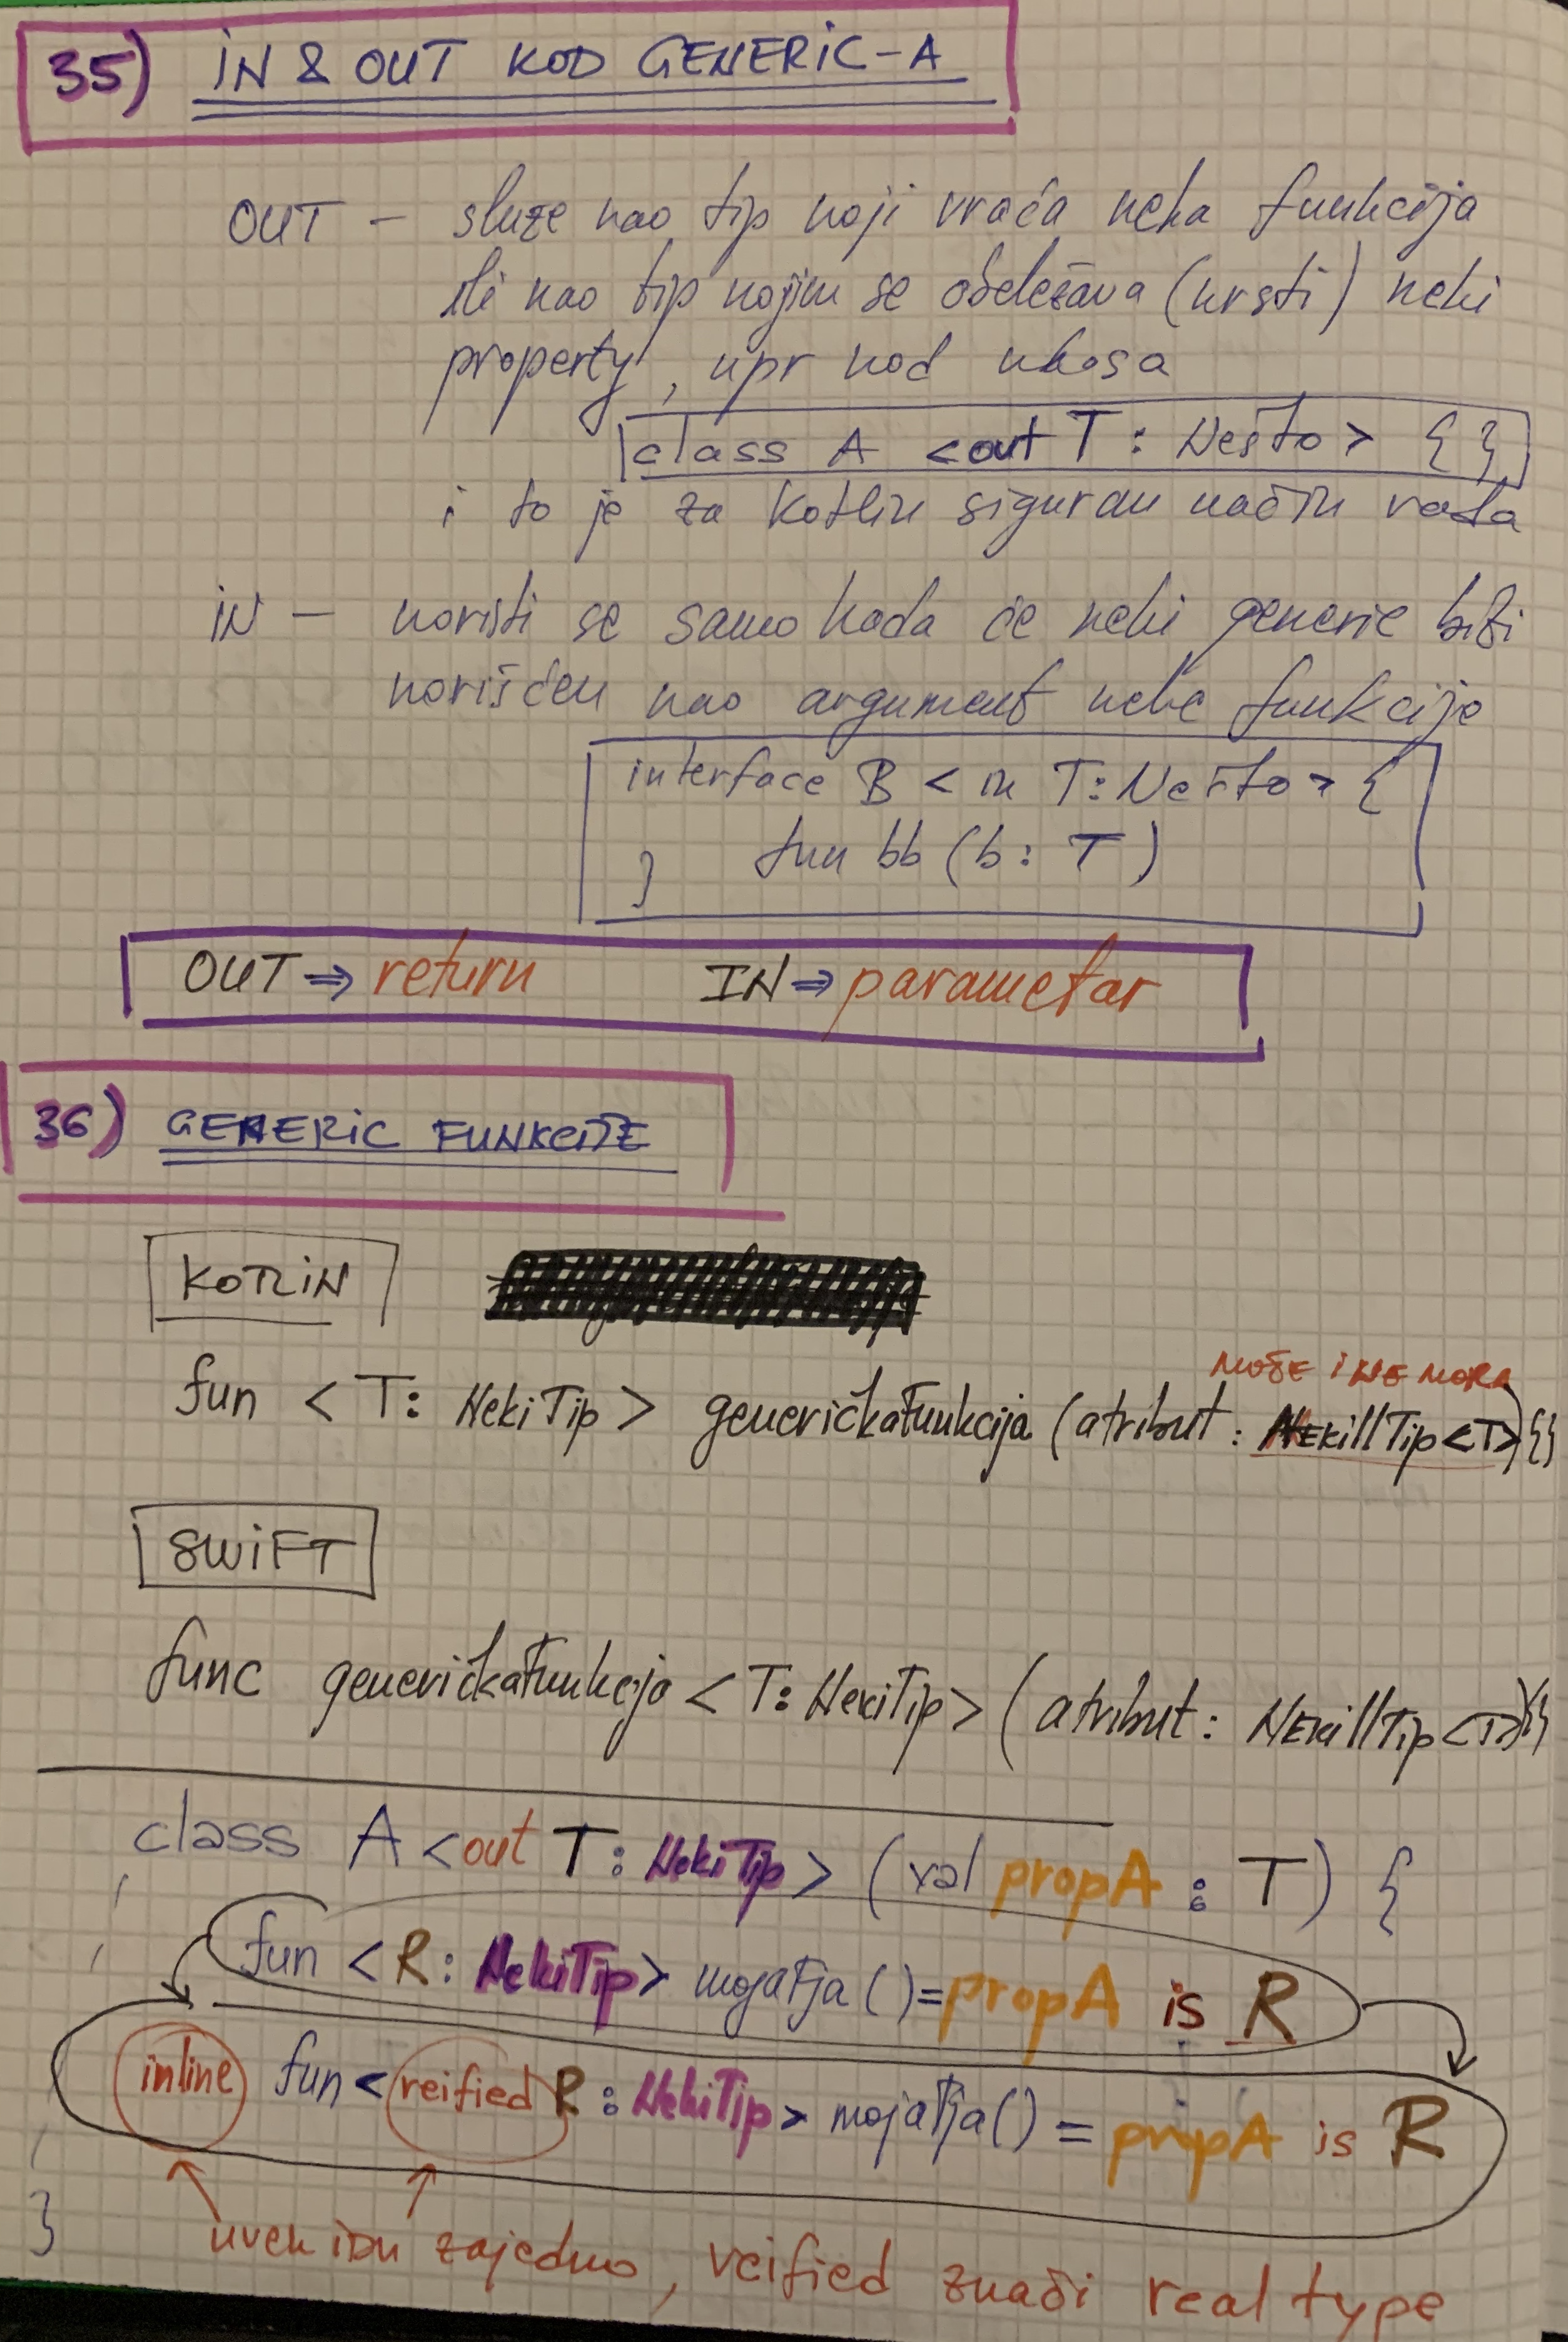 35) IN & OUT KOD GENERIC-A
OUT – služe kao tip koji vraća neka funkcija
ili kao tip kojim se obeležava (krsti) neki
property, npr kod klasa
class A <out T : Nešto> { }
i to je za Kotlin siguran način rada
IN – koristi se samo kada će neki generic biti
korišćen kao argument neke funkcije
interface B < in T: Nešto > {
fun bb (b: T)
}
OUT ⇒ return IN ⇒ parametar
36) GENERIC FUNKCIJE
KOTLIN
MOŽE I NE MORA
fun <T: NekiTip> generičkaFunkcija (atribut : NEKillTip<T>) {}
SWIFT
func generičkaFunkcija <T: NekiTip> (atribut : NEKillTip<T>) {}
class A <out T : NekiTip> (val propA : T) {
fun <R: NekiTip> mojaFja () = propA is R
inline fun <reified R : NekiTip> mojaFja() = propA is R
}
uvek idu zajedno, reified znači real type